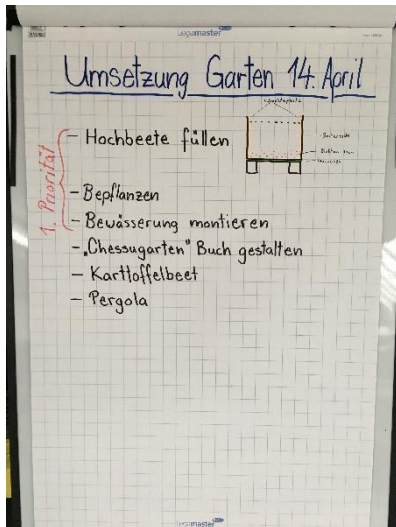 Legamaster
Umsetzung Garten 14. April
1. Priorität
- Hochbeete füllen
- Bepflanzen
- Bewässerung montieren
- „Chessugarten" Buch gestalten
- Karttoffelbeet
- Pergola
Legamaster